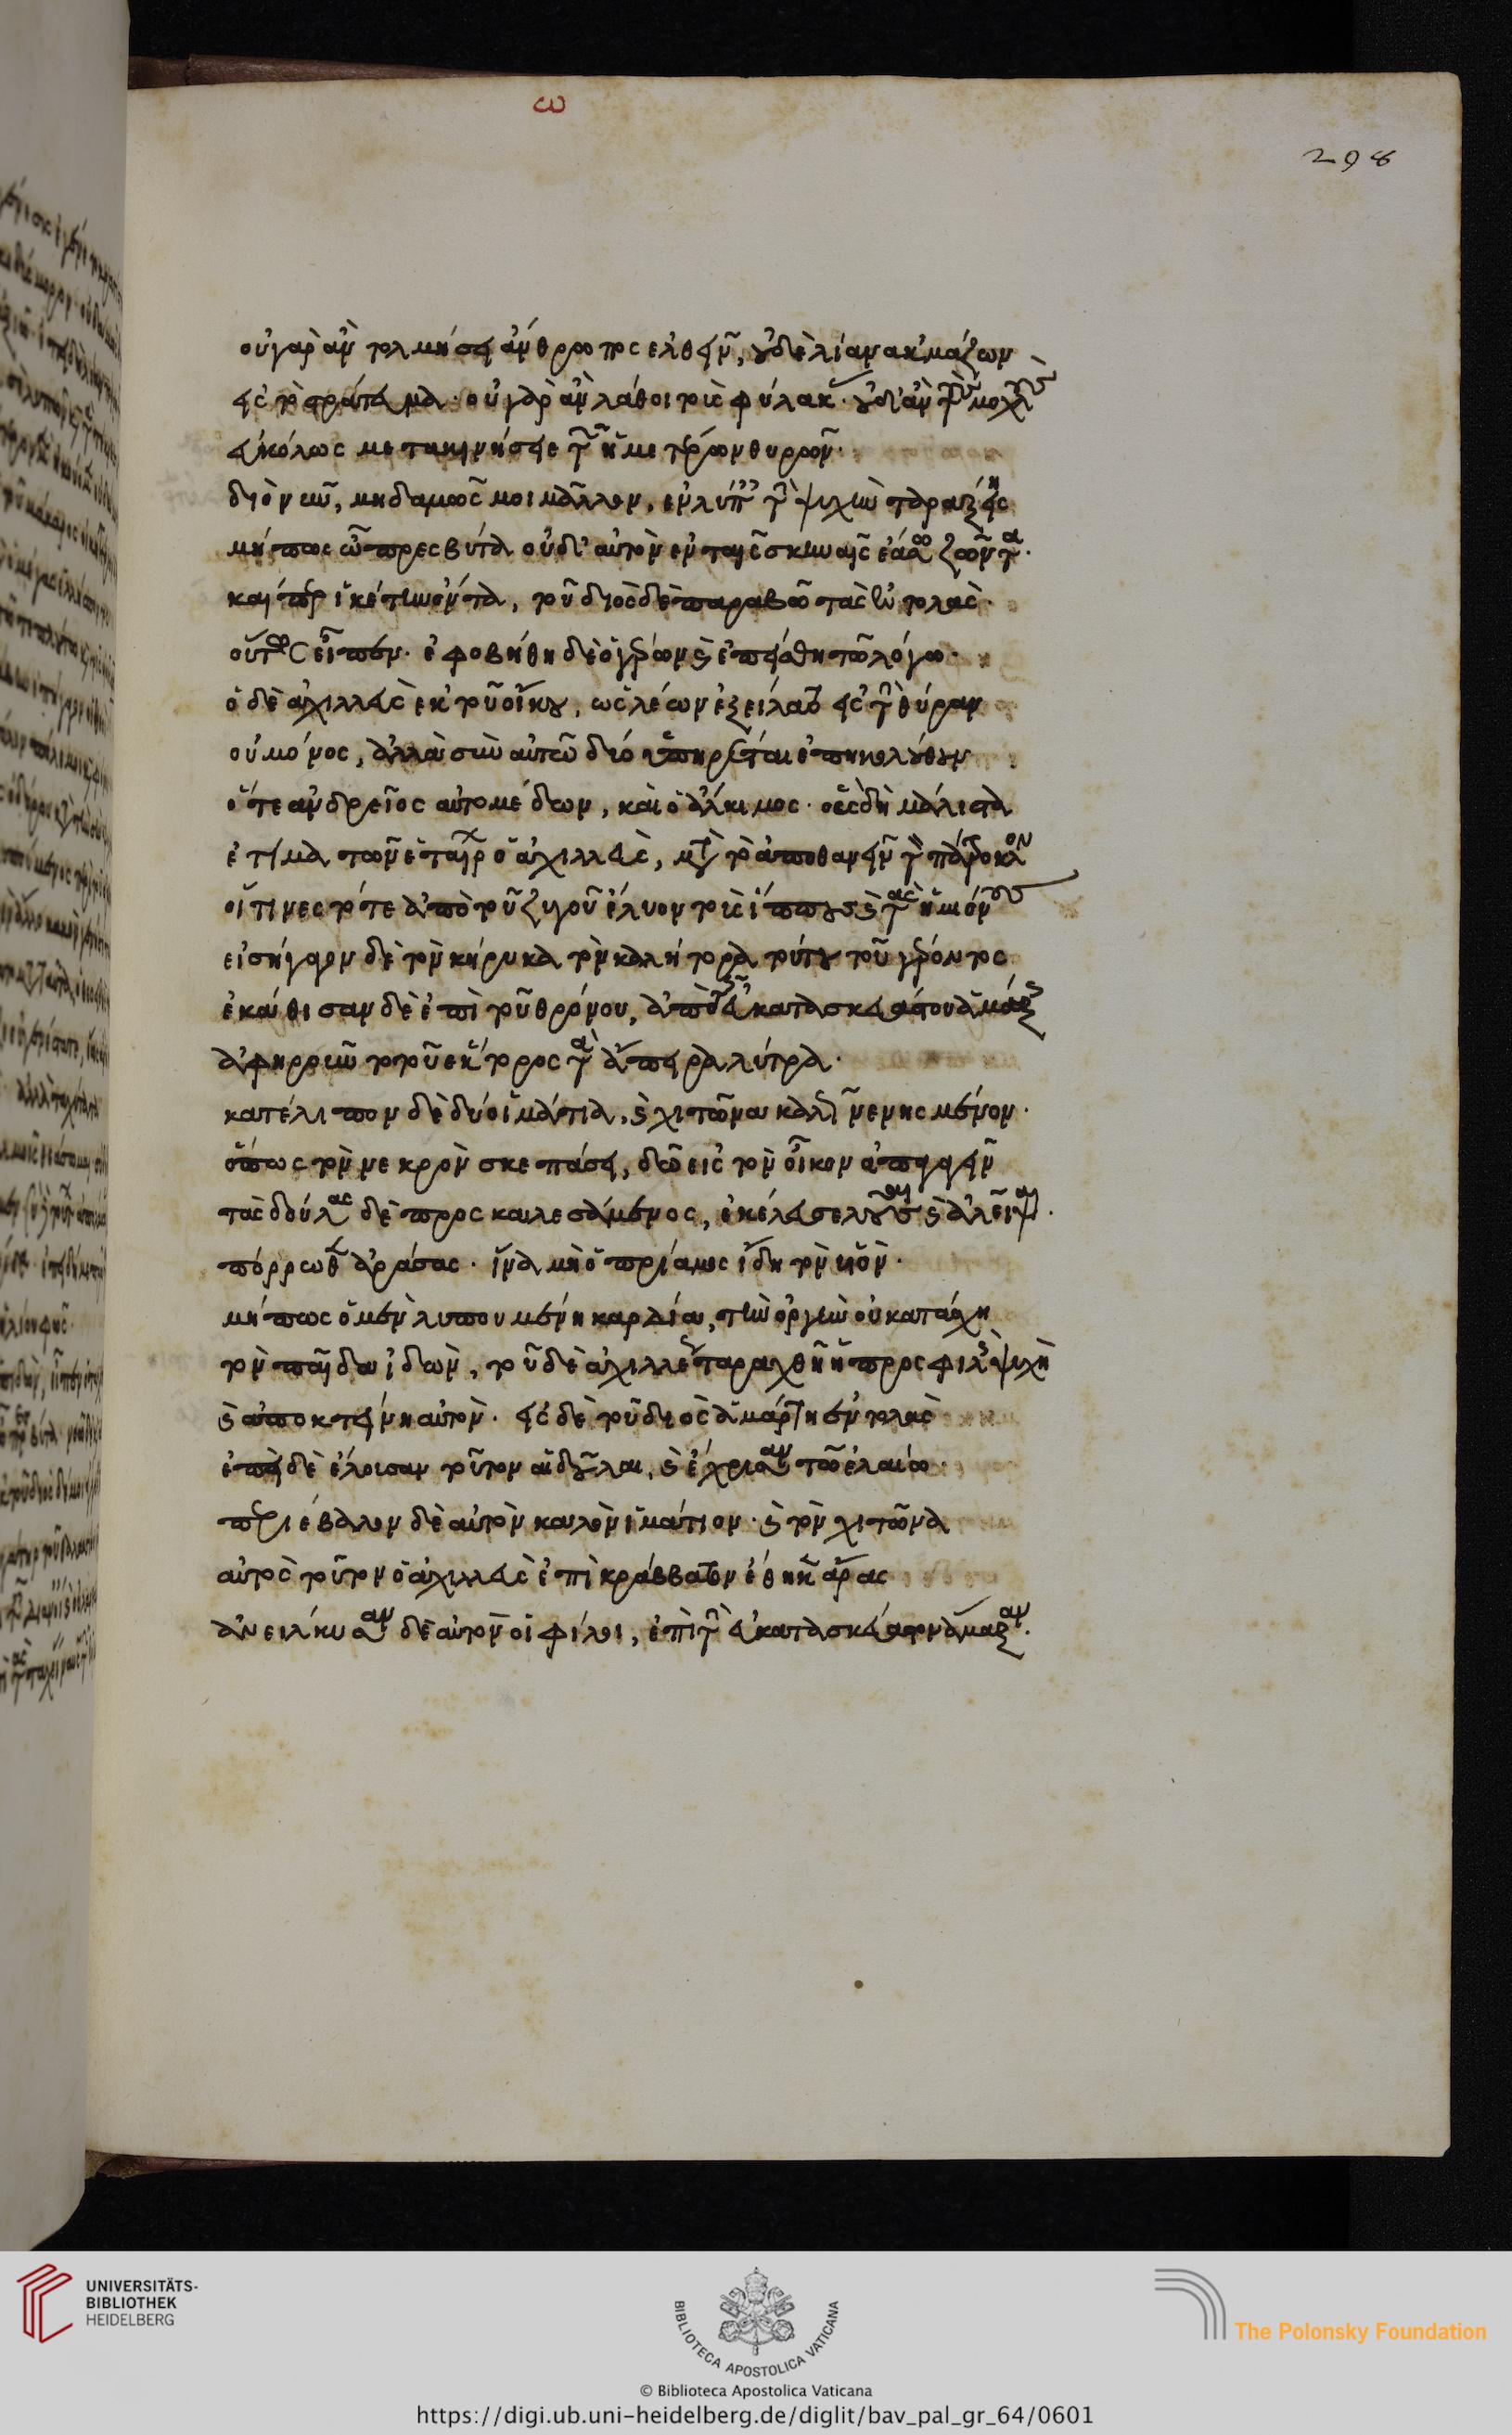 ω
298
οὐ γὰρ ἂν τολμήσει ἄνθρωπος ἐλθεῖν, οὐδὲ λίαν ἀκμάζων
εἰς τὸ στράτευμα. οὐ γὰρ ἂν λάθοι τοὺς φύλακας. οὐδ' ἂν τοὺς μοχλοὺς
εὐκόλως μετακινήσειε τῶν ἡμετέρων θυρῶν.
διὸ νῦν, μηδαμῶς μοι μᾶλλον, ἐν λύπαις τὴν ψυχὴν ταράξῃς
μήπως ὦ πρεσβύτα οὐδ' αὐτὸν ἐν ταῖς σκηναῖς ἐάσω ζῶντα.
καίπερ ἱκέτην ὄντα, τοῦ διὸς δὲ παραβῶ τὰς ἐντολάς.
οὕτως εἶπεν. ἐφοβήθη δὲ ὁ γέρων καὶ ἐπείσθη τῶ λόγω.
ὁ δὲ ἀχιλλεὺς ἐκ τοῦ οἴκου, ὡς λέων ἐξείλατο εἰς τὴν θύραν
οὐ μόνος, ἀλλὰ σὺν αὐτῶ δύο ὑπηρέται ἐπηκολούθουν
ὅ τε ἀνδρεῖος αὐτομέδων, καὶ ὁ ἄλκιμος. οὓς δὴ μάλιστα
ἐτίμα τῶν ἑταίρων ὁ ἀχιλλεὺς, μετὰ τὸ ἀποθανεῖν τὸν πάτροκλον
οἵτινες τότε ἀπὸ τοῦ ζυγοῦ ἔλυον τοὺς ἵππους καὶ τὰς ἡμιόνους
εἰσήγαγον δὲ τὸν κήρυκα τὸν καλήτορα τούτου τοῦ γέροντος
ἐκάθισαν δὲ ἐπὶ τοῦ θρόνου, ἀπὸ τῆς εὐκατασκευάστου ἁμάξης
ἀφηροῦντο τοῦ ἕκτορος τὰ ἄπειρα λύτρα.
κατέλιπον δὲ δύο ἱμάτια, καὶ χιτῶνα καλῶς νενησμένον.
ὅπως τὸν νεκρὸν σκεπάσει, δῶ εἰς τὸν οἶκον ἀπαγαγεῖν
τὰς δούλας δὲ προσκαλεσάμενος, ἐκέλευσε λοῦσθαι καὶ ἀλεῖψαι.
πόρρωθεν ἀράσας. ἵνα μὴ ὁ πρίαμος ἴδη τὸν υἱόν.
μήπως ὁ μὲν λυπουμένη καρδία, τὴν ὀργὴν οὐ κατάσχη
τὸν παῖδα ἰδὼν, τοῦ δὲ ἀχιλλέως ταραχθῆ ἡ προσφιλὴς ψυχὴ
καὶ ἀποκτείνη αὐτόν. εἰς δὲ τοῦ διὸς ἁμάρτη ἐντολὰς
ἐπεὶ δὲ ἔλουσαν τοῦτον αἱ δοῦλαι, καὶ ἔχρισαν τῶ ἐλαίω.
περιέβαλον δὲ αὐτὸν καλὸν ἱμάτιον. καὶ τὸν χιτῶνα
αὐτὸς τοῦτον ὁ ἀχιλλεὺς ἐπὶ κράββατον ἔθηκεν ἄρας
ἀνείλκυσαν δὲ αὐτὸν οἱ φίλοι, ἐπὶ τὴν εὐκατασκεύαστον ἅμαξαν.
UNIVERSITÄTS-
BIBLIOTHEK
HEIDELBERG
BIBLIOTECA APOSTOLICA VATICANA
The Polonsky Foundation
© Biblioteca Apostolica Vaticana
https://digi.ub.uni-heidelberg.de/diglit/bav_pal_gr_64/0601